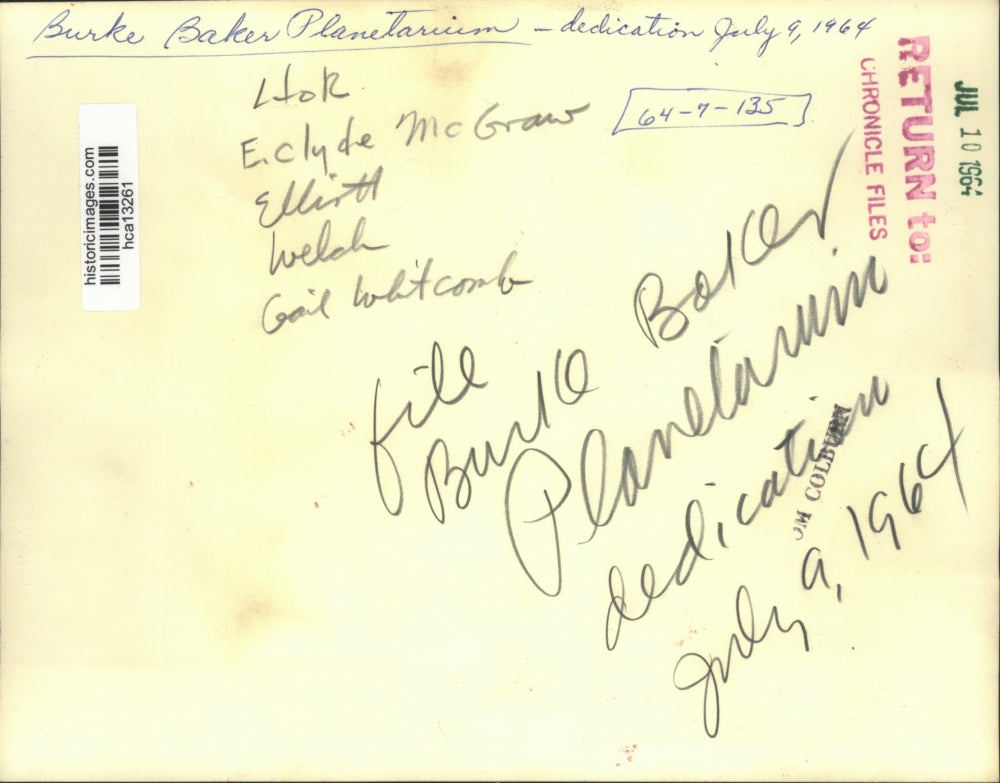 Burke Baker Planetarium - dedication July 9, 1964
LtoR
E. Clyde McGraw
Elliott
Welch
Gail Whitcomb
64-7-135
file
Burke Baker
Planetarium
dedication
July 9, 1964
RETURN to:
CHRONICLE FILES
JUL 10 1964
OM COLBURN
historicimages.com
hca13261